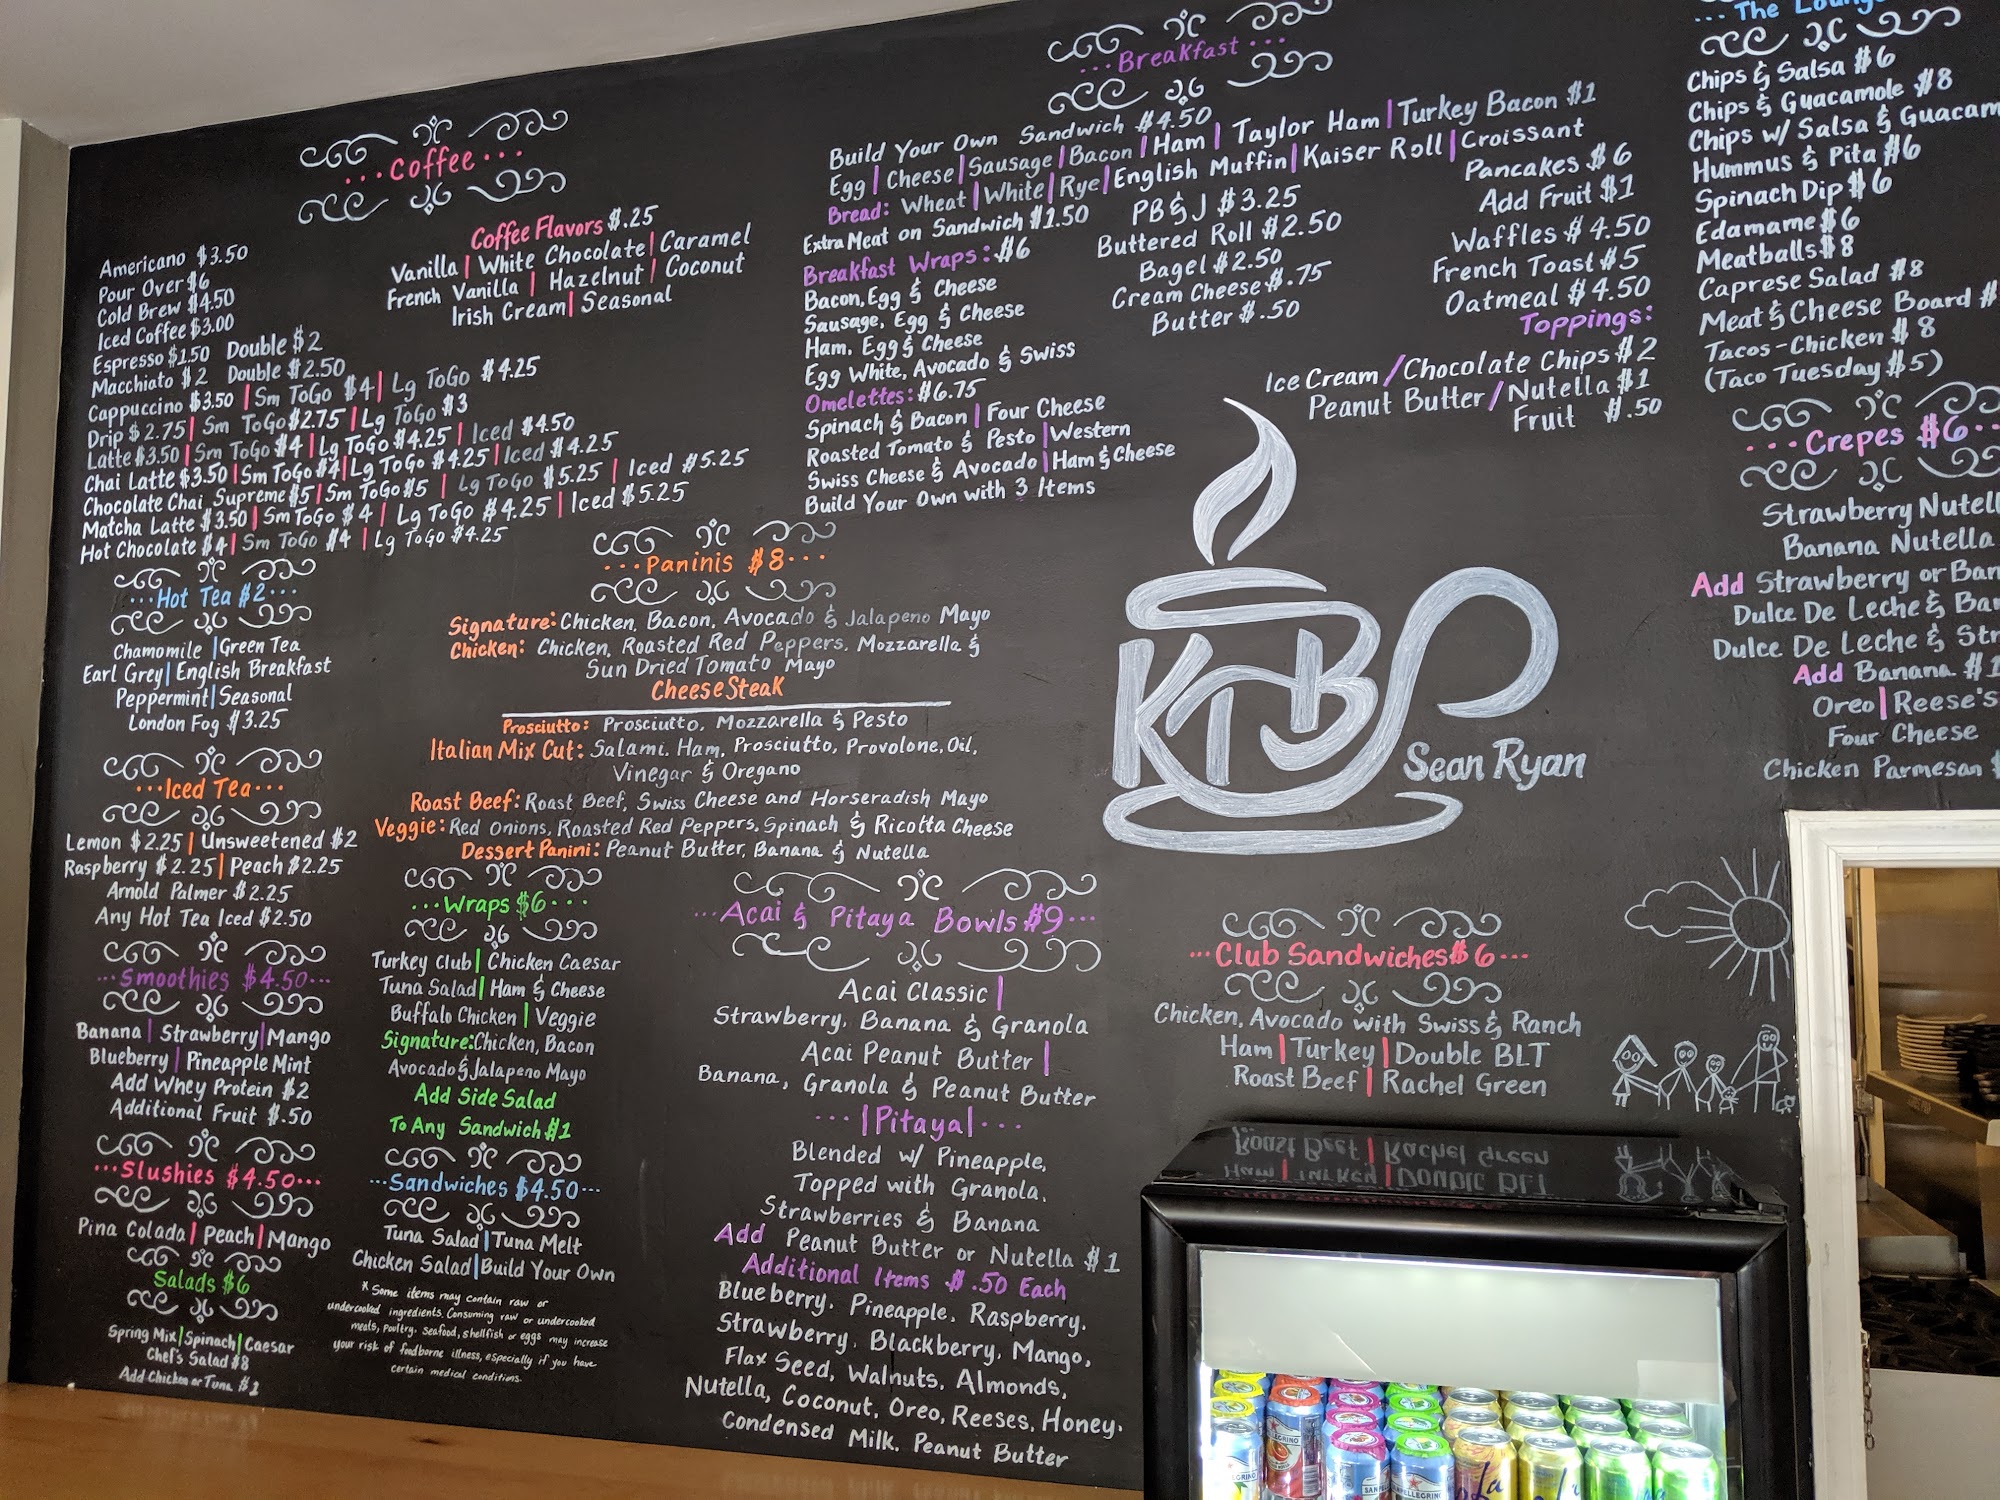 ···Coffee···
Americano $3.50
Pour Over $6
Cold Brew $4.50
Iced Coffee $3.00
Espresso $1.50 Double $2
Macchiato $2 Double $2.50
Cappuccino $3.50 | Sm ToGo $4 | Lg ToGo $4.25
Drip $2.75 | Sm ToGo $2.75 | Lg ToGo $3
Latte $3.50 | Sm ToGo $4 | Lg ToGo $4.25 | Iced $4.50
Chai Latte $3.50 | Sm ToGo $4 | Lg ToGo $4.25 | Iced $4.25
Chocolate Chai Supreme $5 | Sm ToGo $5 | Lg ToGo $5.25 | Iced $5.25
Matcha Latte $3.50 | Sm ToGo $4 | Lg ToGo $4.25 | Iced $5.25
Hot Chocolate $4 | Sm ToGo $4 | Lg ToGo $4.25
Coffee Flavors $.25
Vanilla | White Chocolate | Caramel
French Vanilla | Hazelnut | Coconut
Irish Cream | Seasonal
···Hot Tea $2···
Chamomile | Green Tea
Earl Grey | English Breakfast
Peppermint | Seasonal
London Fog $3.25
···Iced Tea···
Lemon $2.25 | Unsweetened $2
Raspberry $2.25 | Peach $2.25
Arnold Palmer $2.25
Any Hot Tea Iced $2.50
···Smoothies $4.50···
Banana | Strawberry | Mango
Blueberry | Pineapple Mint
Add Whey Protein $2
Additional Fruit $.50
···Slushies $4.50···
Pina Colada | Peach | Mango
Salads $6
Spring Mix | Spinach | Caesar
Chef's Salad $8
Add Chicken or Tuna $1
···Paninis $8···
Signature: Chicken, Bacon, Avocado & Jalapeno Mayo
Chicken: Chicken, Roasted Red Peppers, Mozzarella &
Sun Dried Tomato Mayo
Cheese Steak
Prosciutto: Prosciutto, Mozzarella & Pesto
Italian Mix Cut: Salami, Ham, Prosciutto, Provolone, Oil,
Vinegar & Oregano
Roast Beef: Roast Beef, Swiss Cheese and Horseradish Mayo
Veggie: Red Onions, Roasted Red Peppers, Spinach & Ricotta Cheese
Dessert Panini: Peanut Butter, Banana & Nutella
···Wraps $6···
Turkey Club | Chicken Caesar
Tuna Salad | Ham & Cheese
Buffalo Chicken | Veggie
Signature: Chicken, Bacon
Avocado & Jalapeno Mayo
Add Side Salad
To Any Sandwich $1
···Sandwiches $4.50···
Tuna Salad | Tuna Melt
Chicken Salad | Build Your Own
* Some items may contain raw or
undercooked ingredients. Consuming raw or undercooked
meats, poultry, seafood, shellfish or eggs may increase
your risk of foodborne illness, especially if you have
certain medical conditions.
···Breakfast···
Build Your Own Sandwich $4.50
Egg | Cheese | Sausage | Bacon | Ham | Taylor Ham | Turkey Bacon $1
Bread: Wheat | White | Rye | English Muffin | Kaiser Roll | Croissant
Extra Meat on Sandwich $1.50
Breakfast Wraps: $6
Bacon, Egg & Cheese
Sausage, Egg & Cheese
Ham, Egg & Cheese
Egg White, Avocado & Swiss
Omelettes: $6.75
Spinach & Bacon | Four Cheese
Roasted Tomato & Pesto | Western
Swiss Cheese & Avocado | Ham & Cheese
Build Your Own with 3 Items
PB & J $3.25
Buttered Roll $2.50
Bagel $2.50
Cream Cheese $.75
Butter $.50
Pancakes $6
Add Fruit $1
Waffles $4.50
French Toast $5
Oatmeal $4.50
Toppings:
Ice Cream / Chocolate Chips $2
Peanut Butter / Nutella $1
Fruit $.50
KTB
Sean Ryan
···Acai & Pitaya Bowls $9···
Acai Classic |
Strawberry, Banana & Granola
Acai Peanut Butter |
Banana, Granola & Peanut Butter
···|Pitaya|···
Blended w/ Pineapple,
Topped with Granola,
Strawberries & Banana
Add Peanut Butter or Nutella $1
Additional Items $.50 Each
Blueberry, Pineapple, Raspberry,
Strawberry, Blackberry, Mango,
Flax Seed, Walnuts, Almonds,
Nutella, Coconut, Oreo, Reeses, Honey,
Condensed Milk, Peanut Butter
···Club Sandwiches $6···
Chicken, Avocado with Swiss & Ranch
Ham | Turkey | Double BLT
Roast Beef | Rachel Green
··· The
Chips & Salsa $6
Chips & Guacamole $8
Chips w/ Salsa &
Hummus & Pita $6
Spinach Dip $6
Edamame $6
Meatballs $8
Caprese Salad $8
Meat & Cheese Board $
Tacos - Chicken $8
(Taco Tuesday $5)
···Crepes $6··
Strawberry
Banana Nutella
Add Strawberry or
Dulce De Leche &
Dulce De Leche &
Add Banana $1
Oreo | Reese's
Four Cheese
Chicken Parmesan